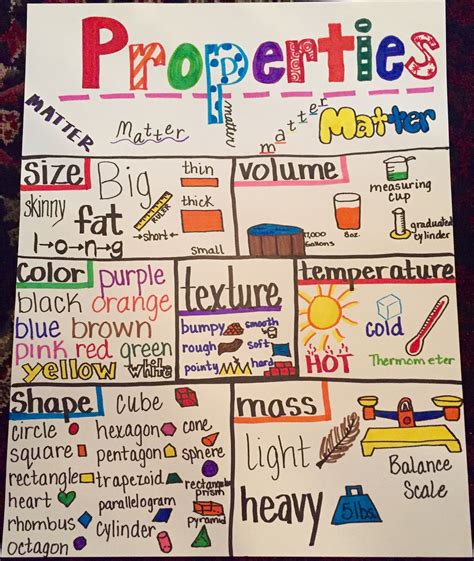 Properties
MATTER
Matter
matter
matter
Matter
Size
Big
thin
skinny
fat
RULER
thick
l→o→n→g
←short→
small
volume
measuring cup
1,000 Gallons
8oz.
graduated cylinder
Color
purple
black orange
blue brown
pink red green
yellow white
texture
bumpy smooth
rough soft
pointy hard
temperature
cold
HOT
Thermometer
Shape
Cube
circle hexagon cone
square pentagon sphere
rectangle trapezoid rectangular prism
heart parallelogram
rhombus cylinder pyramid
octagon
mass
light
heavy
5lbs.
Balance Scale